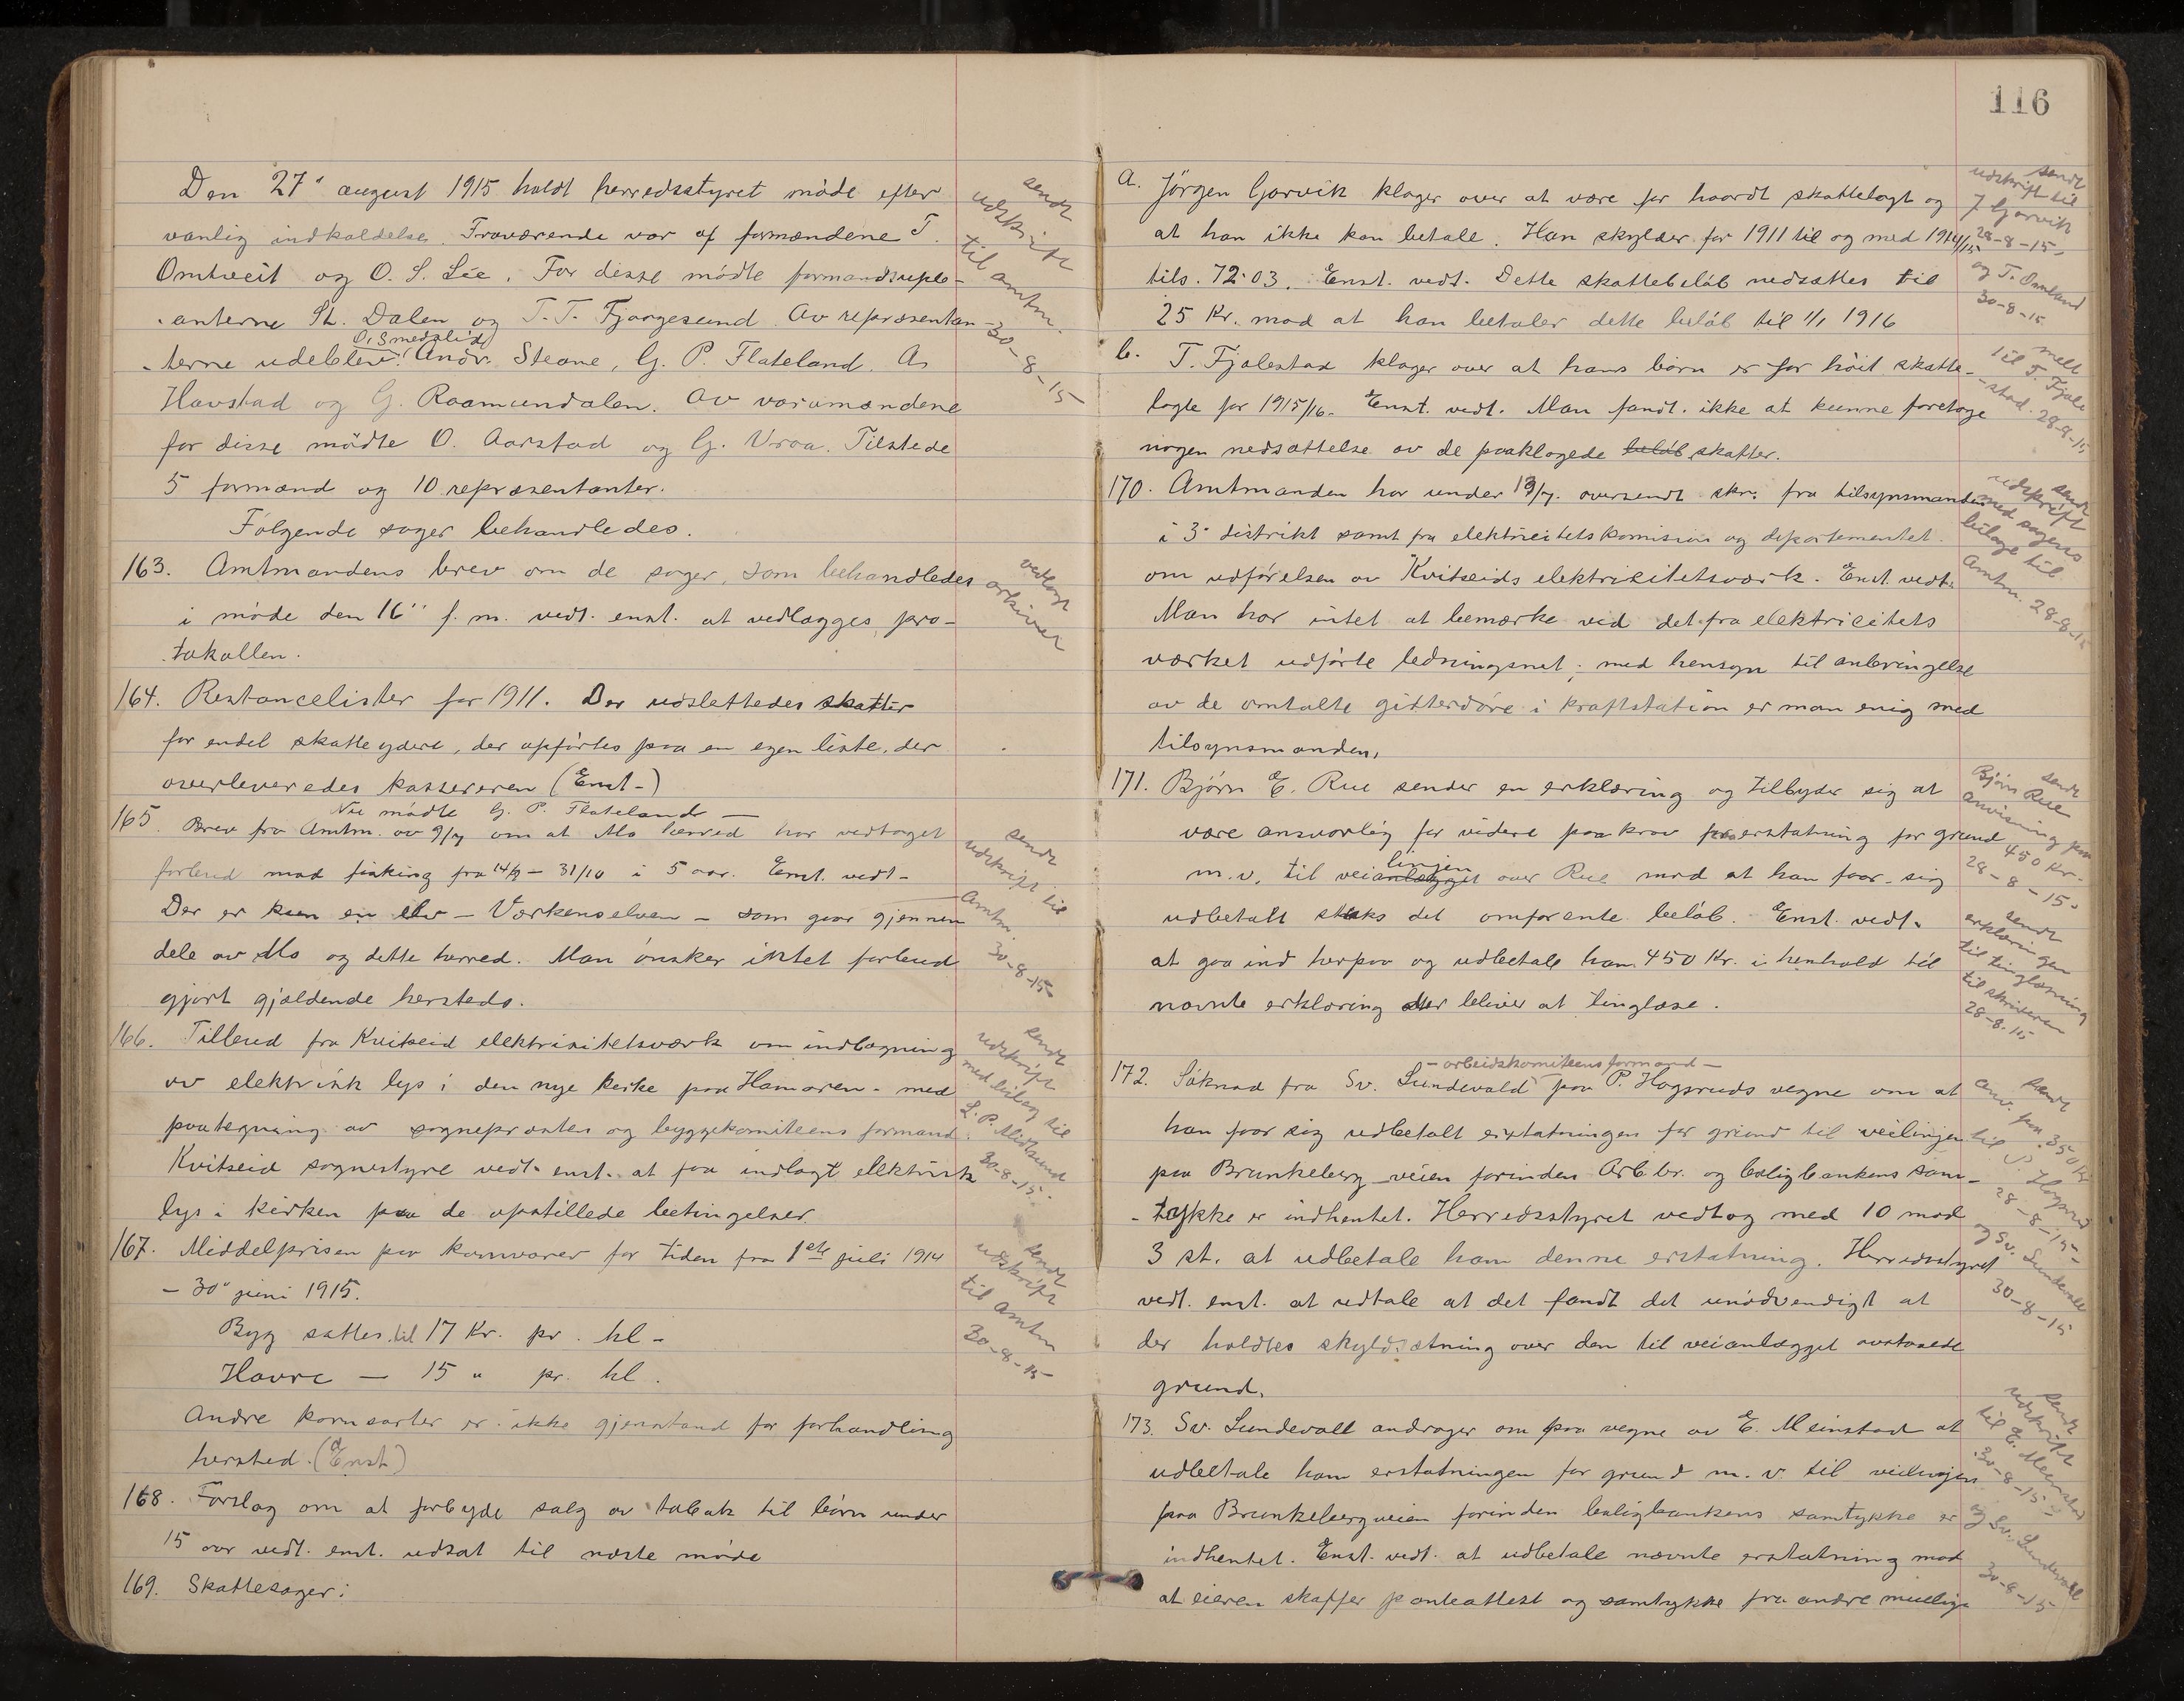 Den 27de august 1915 holdt herredsstyret møde efter
vanlig indkaldelse. Fraværende var af formændene T.
Omtveit og O. S. Lie. For disse mødte formandsuple-
anterne St. Dalen og T. T. Fjorgesund. Av repræsentan-
O. Smedslid
terne udeblev: Andr. Steane, G. P. Flateland. A.
Havstad og G. Raamundalen. Av varamændene
for disse mødte O. Aarstad og G. Vraa. Tilstede
5 formænd og 10 repræsentanter.
Følgende sager behandledes.
163. Amtmandens brev om de sager, som behandledes
i møde den 16de f. m. vedt. enst. at vedlægges pro-
tokollen.
164. Restancelister for 1911. Der udslettedes skatter
for endel skatteydere, der opførtes paa en egen liste, der
overleveredes kassereren (Enst.)
Nu mødte G. P. Flateland —
165. Brev fra Amtm. av 9/7 om at Mo herred har vedtaget
forbud mod fisking fra 14/9 – 31/10 i 5 aar. Enst. vedt.
Der er kun en elv – Værkenselven – som gaar gjennem
dele av Mo og dette herred. Man ønsker intet forbud
gjort gjældende hersteds.
166. Tilbud fra Kviteid elektrisitetsværk om indlægning
av elektrisk lys i den nye kirke paa Hamaren – med
paategning av sogneprosten og byggekomiteens formand.
Kvitseid sognestyre vedt. enst. at faa indlagt elektrisk
lys i kirken paa de opstillede betingelser.
167. Middelprisen paa kornvarer for tiden fra 1ste juli 1914
– 30te juni 1915.
Byg sattes til 17 Kr. pr. hl –
Havre — 15 " pr. hl.
Andre kornsorter er ikke gjenstand for forhandling
hersted. (Enst)
168. Forslag om at forbyde salg av tobak til børn under
15 aar vedt. enst. udsat til næste møde
169. Skattesager:
sendt
udskrift
til amtm.
30-8-15
vedlagt
arkivet
sendt
udskrift til
Amtm.
30-8-15
sendt
udskrift
med bilag til
L. P. Midtsund
30-8-15.
sendt
udskrift
til Amtm
30-8-15
116
a. Jørgen Gjørvik klager over at være for haardt skattelagt og
at han ikke kan betale. Han skylder for 1911 til og med 1914/15
tils. 72.03. Enst. vedt. Dette skattebeløb nedsættes til
25 Kr. mod at han betaler dette beløb til 1/1 1916
b. T. Fjalestad klager over at hans børn er for høit skatte-
lagte for 1915/16. Enst. vedt. Man fandt ikke at kunne foretage
nogen nedsættelse av de paaklagede beløb skatter.
170. Amtmanden har under 19/7. oversendt skr. fra tilsynsmanden
i 3. distrikt samt fra elektricitetskomision og departementet
om udførelsen av Kvitseids elektrisitetsværk. Enst. vedt.
Man har intet at bemærke ved det fra elektricitets
værket udførte ledningsnet; med hensyn til anbringelse
av de omtalte gitterdøre i kraftstation er man enig med
tilsynsmanden.
171. Bjørn E. Rue sender en erklæring og tilbyder sig at
være ansvarlig for videre paakrav paa erstatning for grund
linjen
m. v. til veianlægget over Rue mod at han faar sig
udbetalt straks det omforente beløb. Enst. vedt.
at gaa ind herpaa og udbetale ham 450 Kr. i henhold til
nævnte erklæring der bliver at tinglæse.
– arbeidskomiteens formand –
172. Søknad fra Sv. Lundevald paa P. Hogsruds vegne om at
han faar sig udbetalt erstatningen for grund til veilinjen
paa Brunkeberg-veien forinden Arb. br. og boligbankens sam-
tykke er indhentet. Herredsstyret vedtog med 10 mod
3 st. at udbetale ham denne erstatning. Herredsstyret
vedt. enst. at udtale at det fandt det unødvendigt at
der holdtes skyldsætning over den til veianlægget avstaaede
grund.
173. Sv. Lundevall andrager om paa vegne av E. Meinstad at
udbetale ham erstatningen for grund m. v. til veilinjen
paa Brunkebergveien forinden boligbankens samtykke er
indhentet. Enst. vedt. at udbetale nævnte erstatning mod
at eieren skaffer panteattest og samtykke fra andre mulige
sendt
udskrift til
J Gjørvik
28-8-15.
og T. Omland
30-8-15
melt
til T. Fjale
stad. 28-8-15
sendt
udskrift
med sagens
bilage til
Amtm. 28-8-15
sendt
Bjørn Rue
anvisning paa
450 Kr.
28-8-15.
sendt
erklæringen
til tinglæsning
til skriveren
28-8-15
sendt
anv. paa 350 Kr
til P. Hogsrud
28-8-15-
og Sv. Lundevall
30-8-15
sendt
udskrift
til E. Meinstad
30-8-15
og Sv. Lundevall
30-8-15